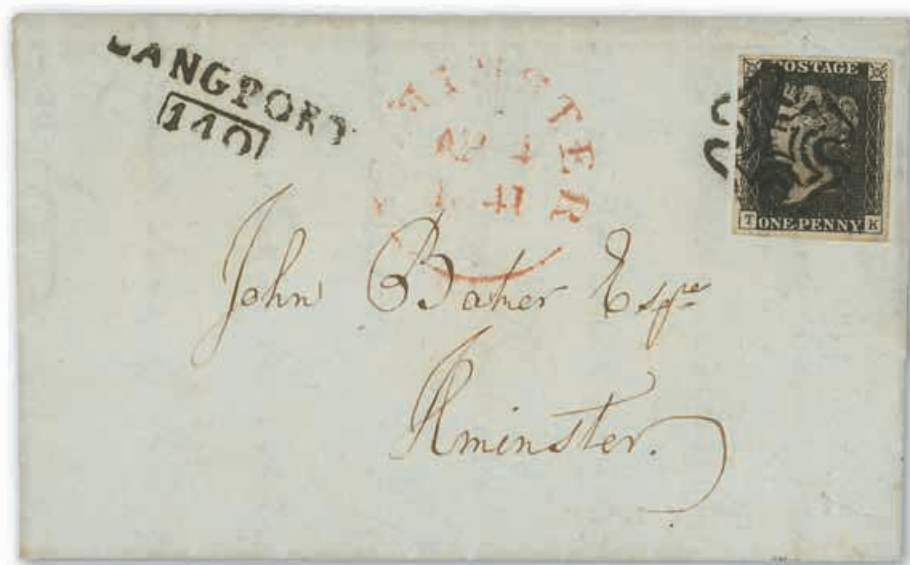 LANGPORT
140
POSTAGE
T ONE PENNY K
John Baker Esqre
Ilminster.